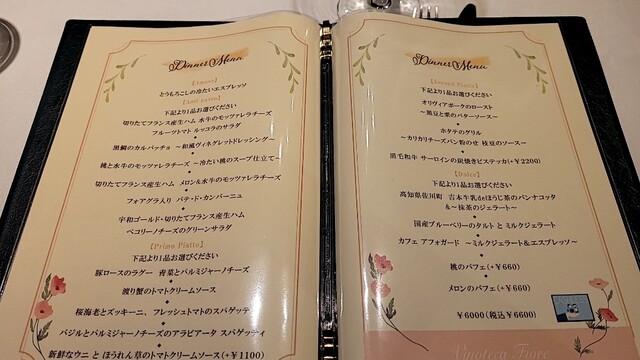 Dinner Menu
【Amuse】
とうもろこしの冷たいエスプレッソ
下記より1品お選びください
切りたてフランス産生ハム 水牛のモッツァレラチーズ
フルーツトマト ルッコラのサラダ
黒鯛のカルパッチョ ～和風ヴィネグレットドレッシング～
桃と水牛のモッツァレラチーズ ～冷たい桃のスープ仕立て～
切りたてフランス産生ハム メロン&水牛のモッツァレラチーズ
フォアグラ入り パテ・ド・カンパーニュ
宇和ゴールド・切りたてフランス産生ハム
ペコリーノチーズのグリーンサラダ
【Primo Piatto】
下記より1品お選びください
豚ロースのラグー 青菜とパルミジャーノチーズ
渡り蟹のトマトクリームソース
桜海老とズッキーニ、フレッシュトマトのスパゲッティ
バジルとパルミジャーノチーズのアラビアータ スパゲッティ
新鮮なウニ と ほうれん草のトマトクリームソース(+￥1100)
Dinner Menu
【Second Piatto】
下記より1品お選びください
オリヴィアポークのロースト
～黒豆と栗のバターソース～
ホタテのグリル
～カリカリチーズパン粉のせ 枝豆のソース～
黒毛和牛 サーロインの炭焼きビステッカ(+￥2200)
【Dolce】
下記より1品お選びください
高知県佐川町 吉本牛乳deほうじ茶のパンナコッタ
&～抹茶のジェラート～
国産ブルーベリーのタルト と ミルクジェラート
カフェ アフォガード ～ミルクジェラート&エスプレッソ～
桃のパフェ(+￥660)
メロンのパフェ(+￥660)
￥6000(税込￥6600)